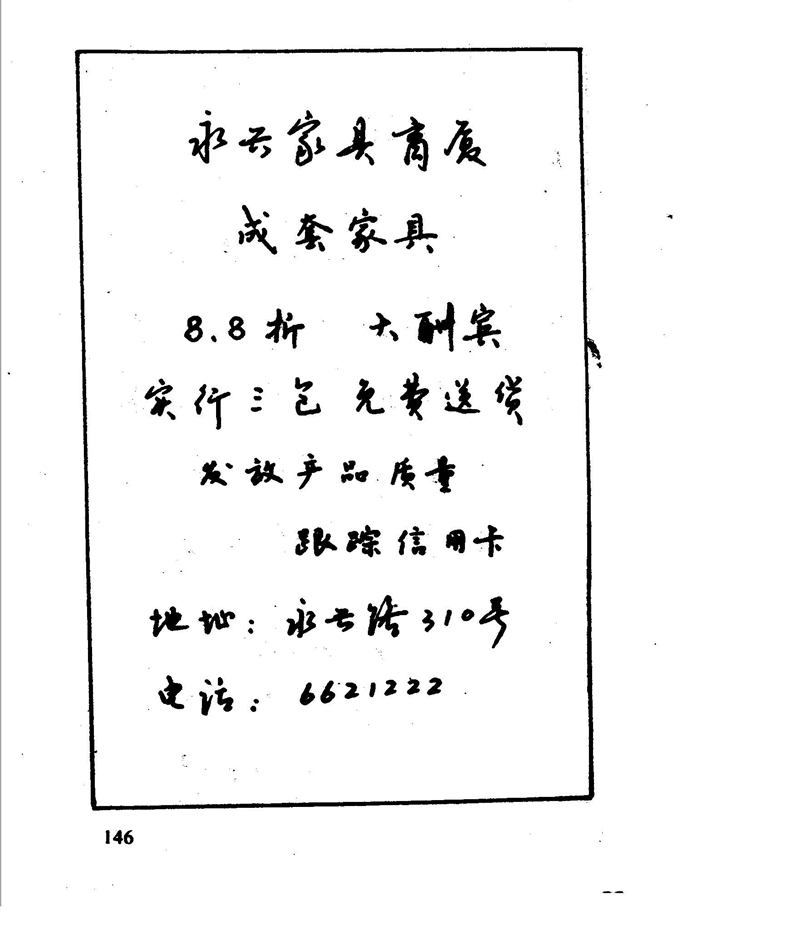 永兴家具商厦
成套家具
8.8折 大酬宾
实行三包 免费送货
发放产品质量
跟踪信用卡
地址：永兴路310号
电话：6621222
146